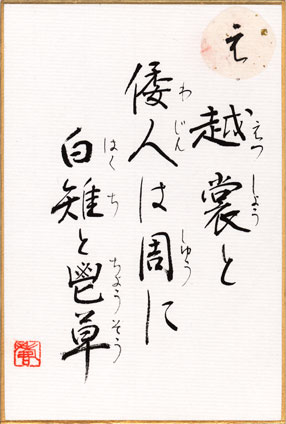 え
えつしょう
越裳と
わじん しゅう
倭人は周に
はくち ちょうそう
白雉と鬯草